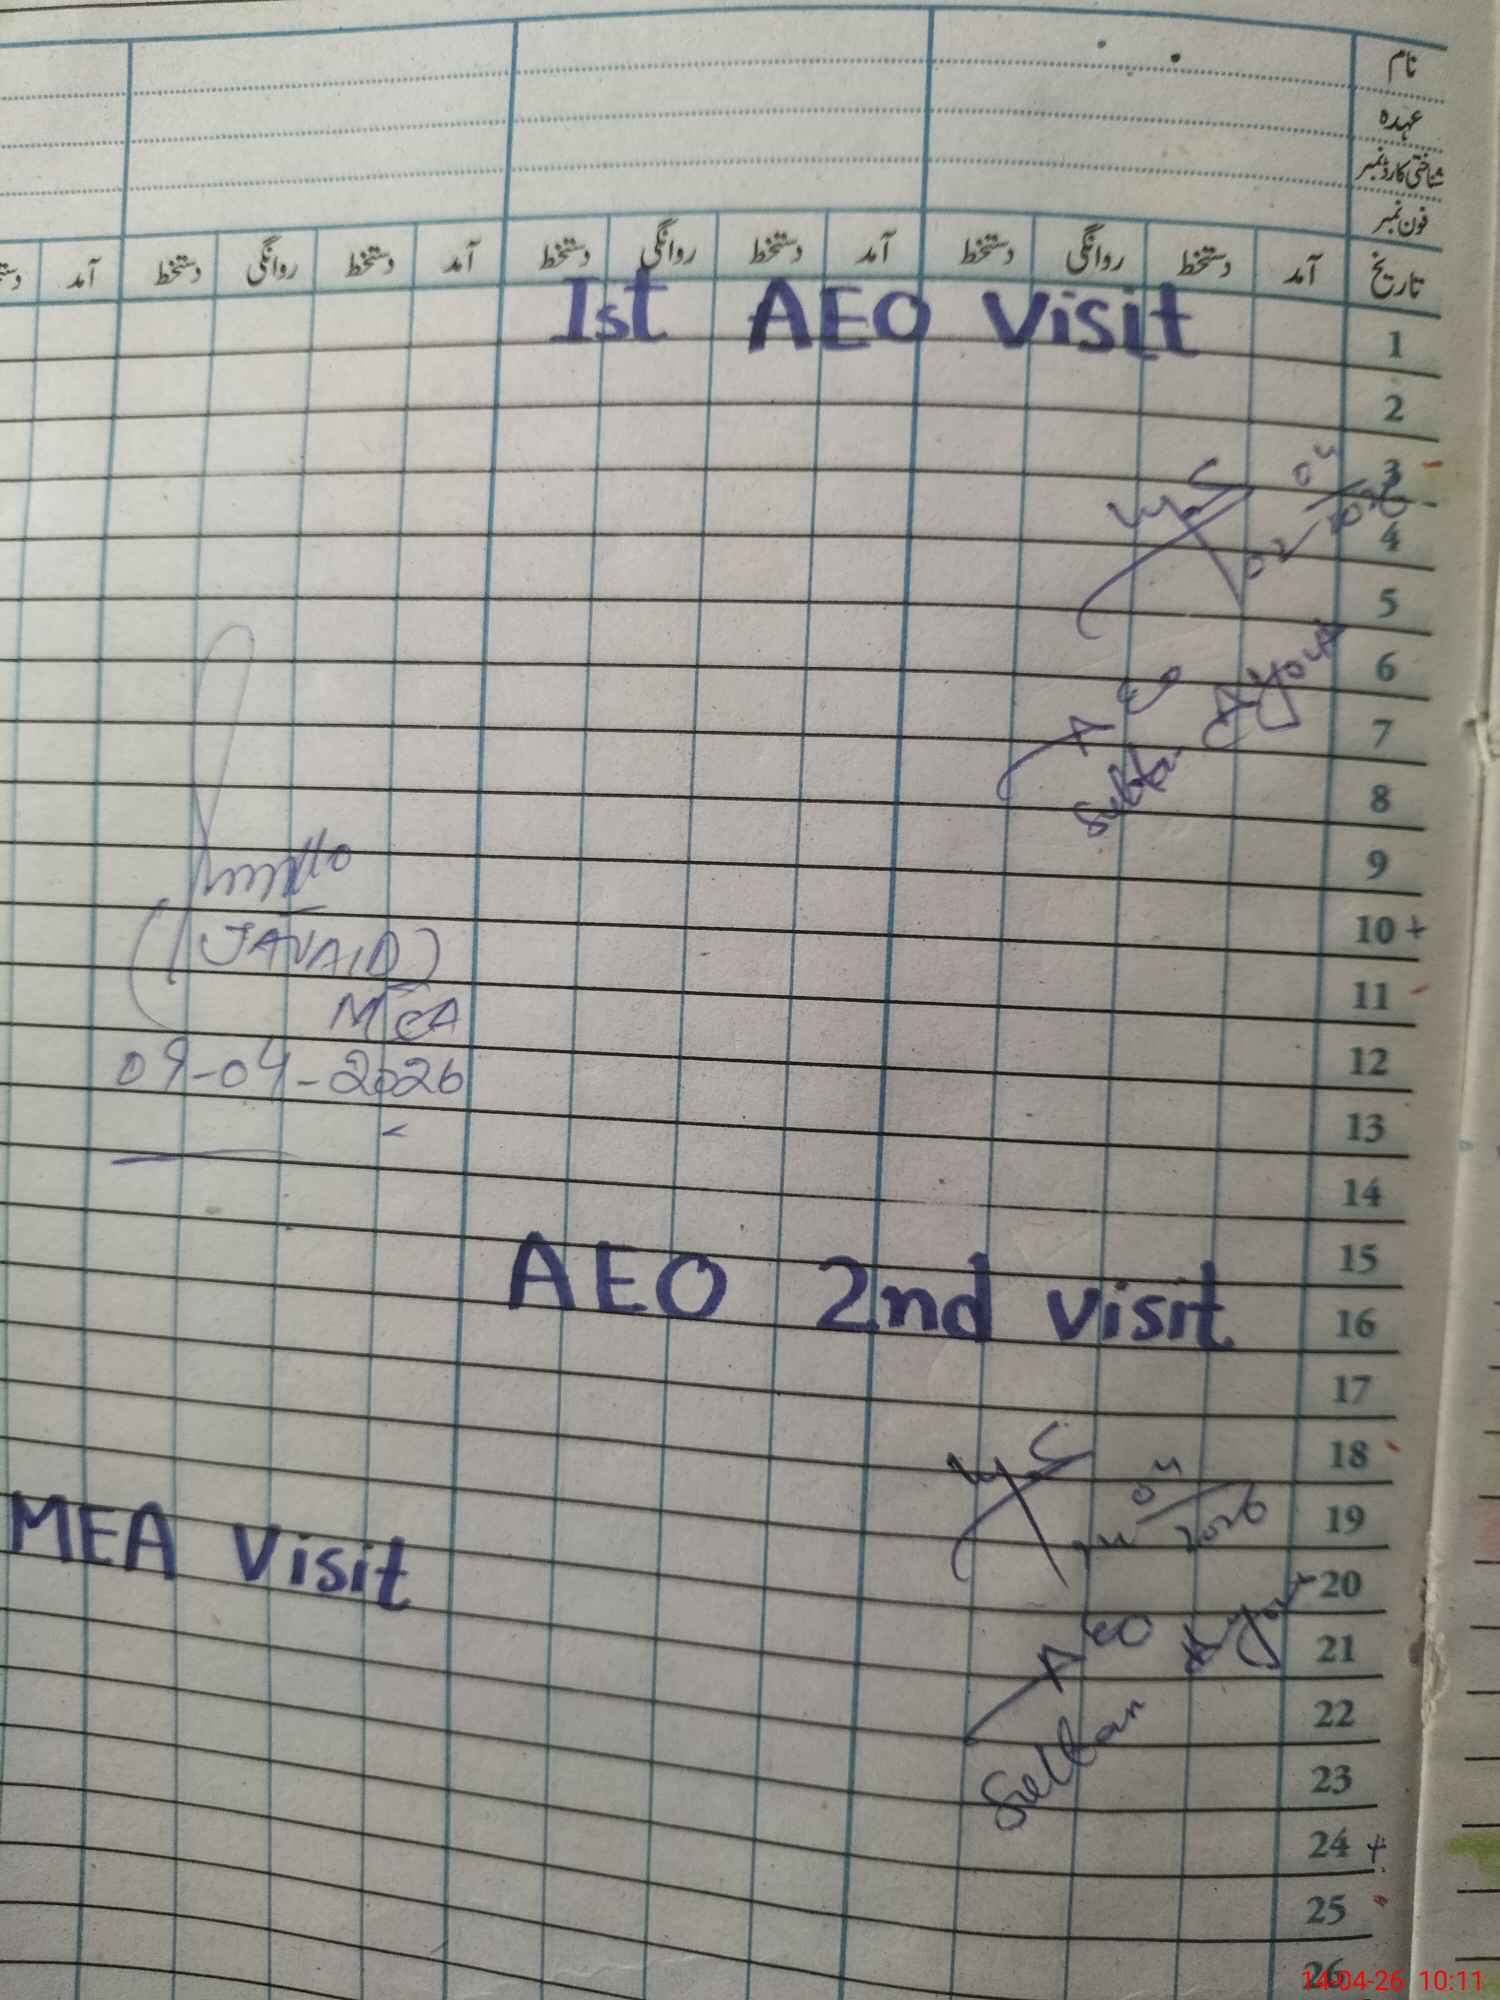 نام
عہدہ
شناختی کارڈ نمبر
فون نمبر
تاریخ آمد دستخط روانگی دستخط آمد دستخط روانگی دستخط آمد دستخط روانگی دستخط آمد
Ist AEO Visit
1
2
3
04
02 2026
4
5
6
AEO
Sultan Ayout
7
8
9
10 +
(JAVAID)
11
MEA
12
09-04-2026
13
14
15
AEO 2nd visit
16
17
18
04
14 2026
19
MEA Visit
20
AEO
Sultan
21
22
23
24 +
25
26
14-04-26 10:11